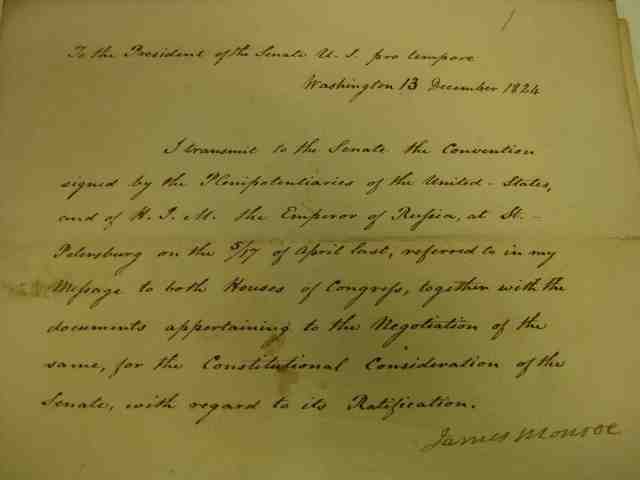 To the President of the Senate U. S. pro tempore
Washington 13 December 1824
I transmit to the Senate the Convention
signed by the Plenipotentiaries of the United-States,
and of H. I. M. the Emperor of Russia, at St.-
Petersburg on the 5/17 of April last, referred to in my
Message to both Houses of Congress, together with the
documents appertaining to the Negotiation of the
same, for the Constitutional Consideration of the
Senate, with regard to its Ratification.
James Monroe